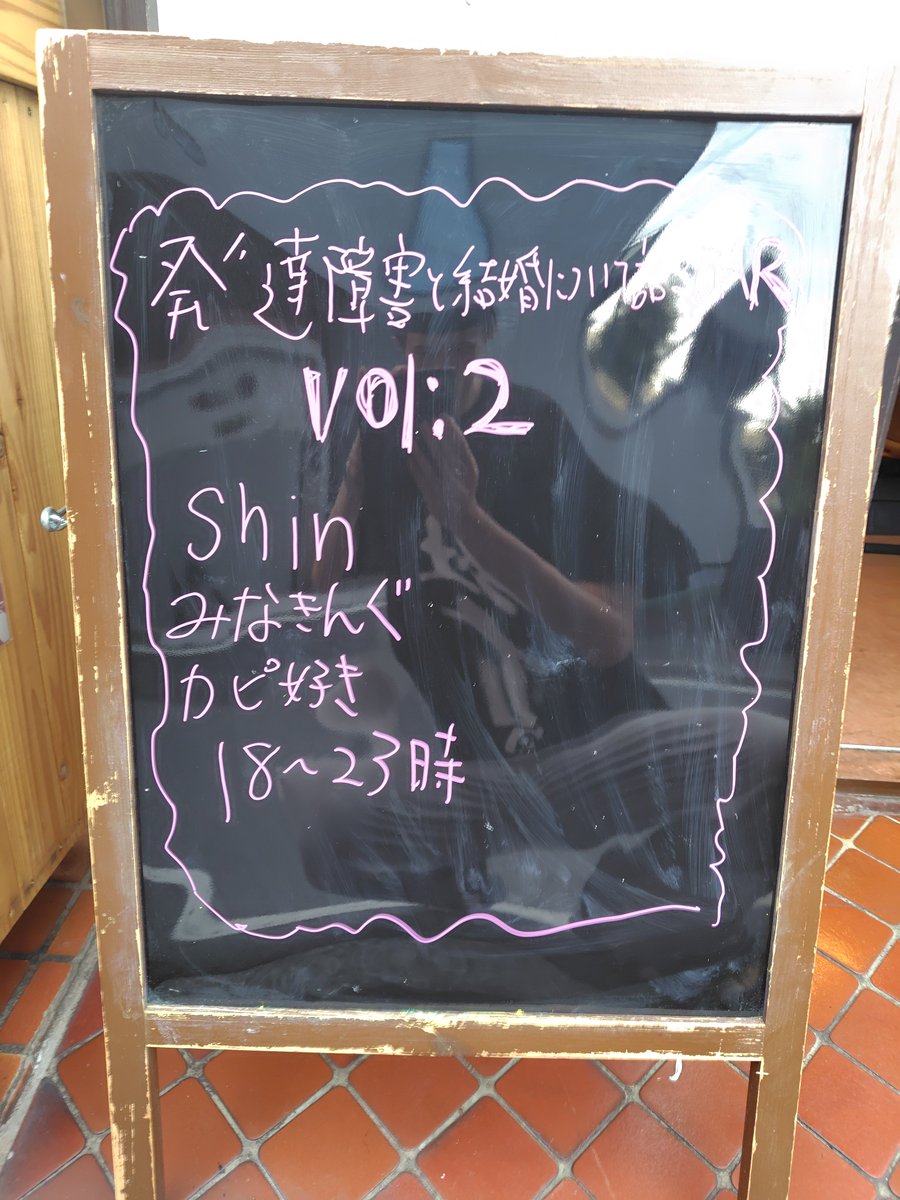 発達障害と結婚について話
vol:2
Shin
みなきんぐ
カピ好き
18~23時